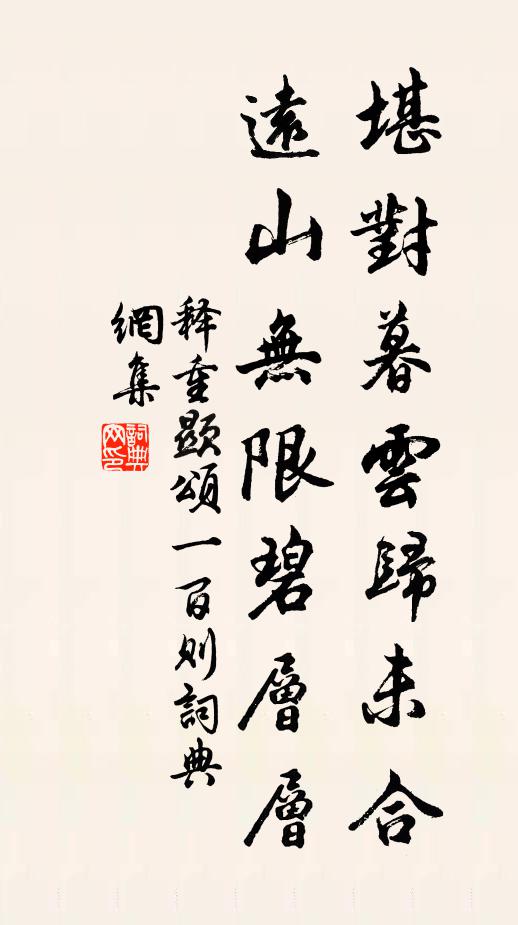 堪對暮雲歸未合
遠山無限碧層層
释重顯頌一百则詞典
網集
詞典
网印